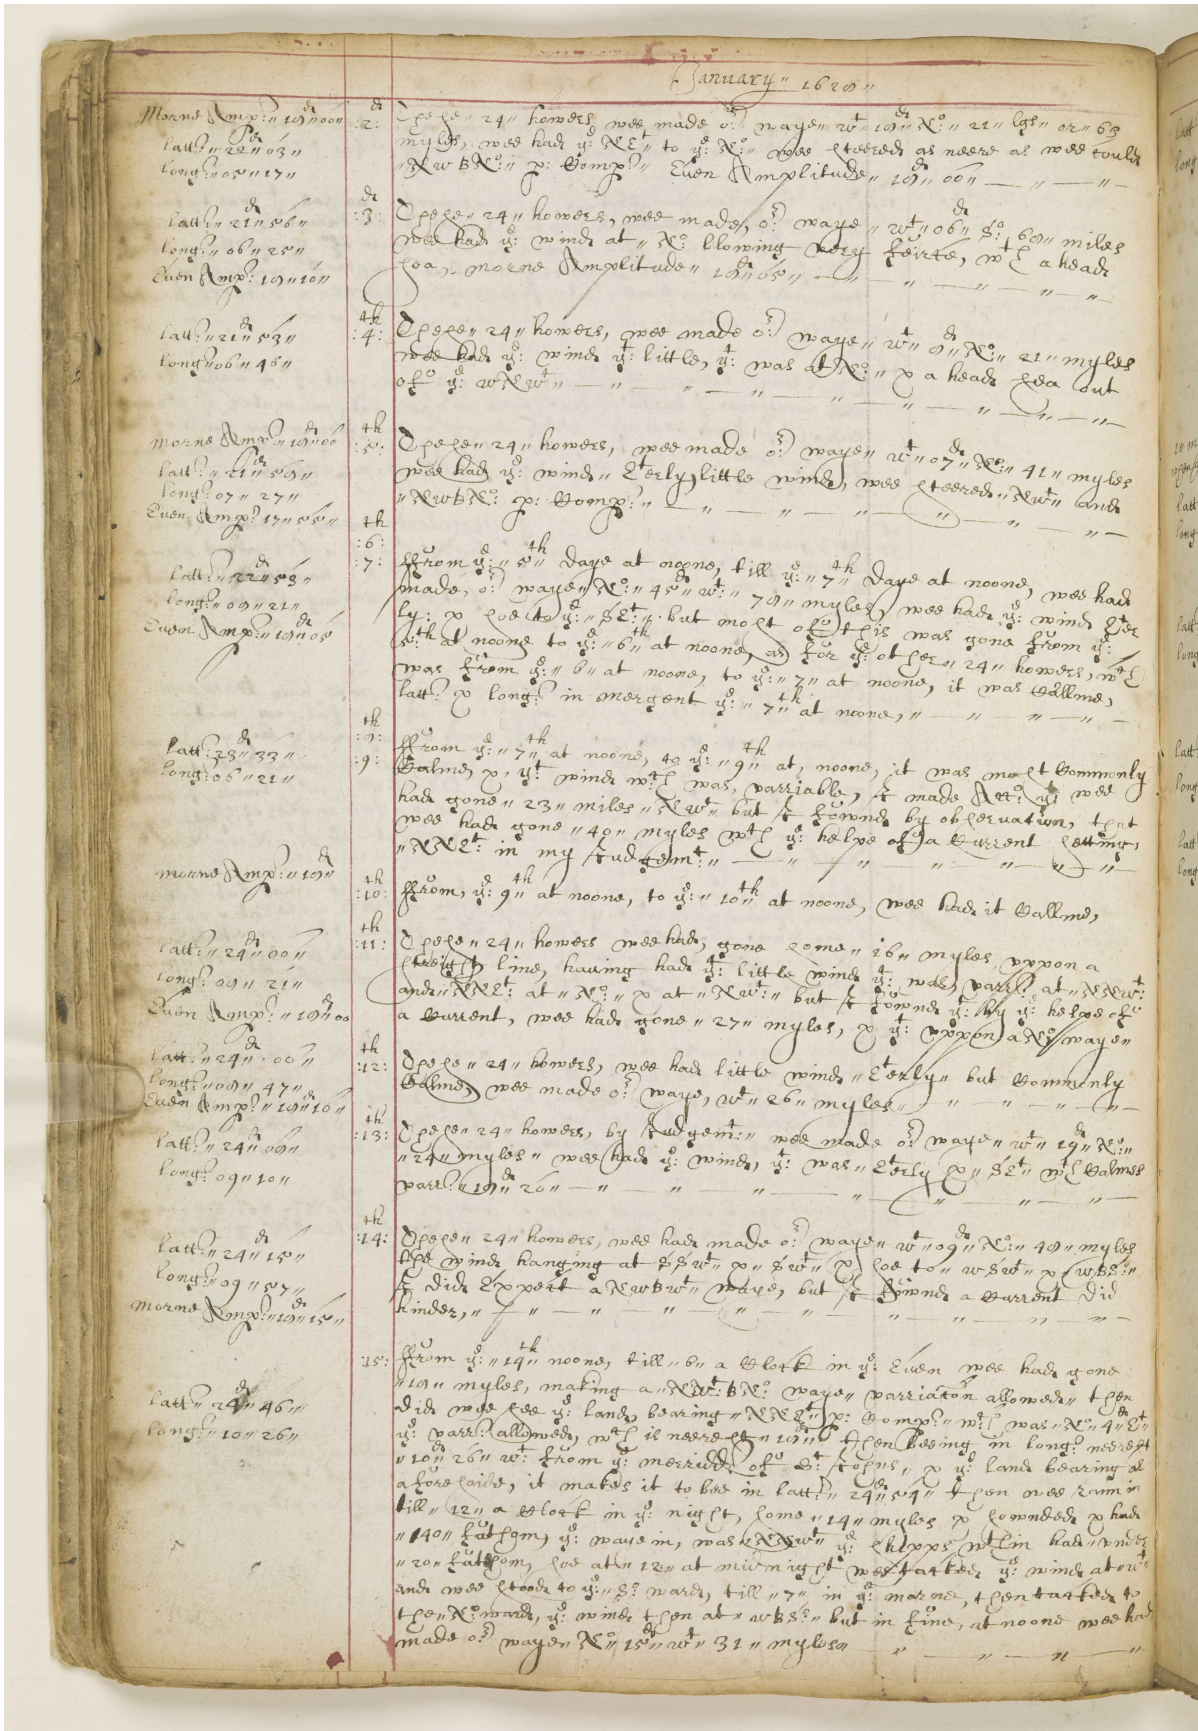 January 1629
Morne Amp: 19 00
latt: 22 03
long: 05 17
2
These 24 howers wee made or waye wt 19 No: 21 lgs or 63
myles, wee had ye NEt to ye No: wee steered as neere as wee could
NWBNo: p: Comp: Even Amplitude 19 00
latt: 21 56
long: 06 25
Even Amp: 19 10
3
These 24 howers, wee made, or waye wt 06 So, 69 miles
wee had ye: wind at No: blowing very feirce, wth a head
sea, morne Amplitude 19 05
latt: 21 53
long: 06 46
4th
These 24 howers, wee made or waye wt No: 21 myles
wee had ye: wind yt: little, yt: was at No: & a head sea out
of ye WNWt
Morne Amp: 19 00
latt: 21 59
long: 07 27
Even Amp: 17 55
5th
These 24 howers, wee made or waye wt 07 No: 41 myles
wee had ye: wind Eterly little wind, wee steered NWt and
NWBNo: p: Comp:
6th
7
latt: 22 53
long: 09 21
Even Amp: 19 05
ffrom ye: 5th daye at noone, till ye: 7th daye at noone, wee had
made, or waye No: 45 wt: 79 myles, wee had ye wind Eter
ly: & soe to ye: SEt: but most of this was gone from ye:
5th at noone to ye: 6th at noone, as for ye: other 24 howers, wch
was from ye: 6 at noone, to ye: 7 at noone, it was Callme,
latt: & long: in mergent ye: 7th at noone,
latt: 23 33
long: 06 21
9
ffrom ye: 7th at noone, to ye: 9th at, noone, it was most Commonly
Calme, & yt wind wch was, varriable, I made Acco: yt wee
had gone 23 miles NWt but I fownd by observation, that
wee had gone 40 myles wth ye: helpe of a Current setting,
NNEt: in my Judgemt:
morne Amp: 19
10th
ffrom, ye: 9th at noone, to ye: 10th at noone, wee had it Callme,
latt: 24 00
long: 09 21
Even Amp: 19 00
11th
These 24 howers wee had, gone some 16 myles uppon a
streight line, having had ye: little wind yt: was, varr: at NNWt:
and NNEt: at No: & at NWt: but I fownd yt: by ye: helpe of
a Current, wee had gone 27 myles, & yt: uppon a No: waye
latt: 24 00
long: 09 47
Even Amp: 19 10
12th
These 24 howers, wee had little wind Eterly but Commonly
Calme, wee made or waye, wt 26 myles
latt: 24 06
long: 09 10
13th
These 24 howers, by Judgemt: wee made or waye wt 19 No:
24 myles wee had ye: wind, yt: was Eterly & SEt wth Calmes
varr: 19 20
latt: 24 15
long: 09 57
Morne Amp: 19 15
14th
These 24 howers, wee had made or waye wt 09 No: 49 myles
the wind hanging at SSWt & SWt & soe to WSWt & WBS:
I did Expect a NWBWt waye, but I fownd a Current did
hinder,
latt: 24 46
long: 10 26
15
ffrom ye: 14th noone, till 6 a Clock in ye: Even wee had gone
19 myles, making a NWt:BNo: waye varriation allowed then
did wee see ye: land, bearing NNEt p: Comp: wch was No: 4 Et
ye: varr: allowed, wch is neerest 19 then beeing in long: neerest
10 26 wt: from ye: merridd: of St: Johns, & ye: land bearing as
aforesaide, it makes it to bee in latt: 24 54 then wee rann in
till 12 a Clock in ye: night, some 14 myles & sownded & had
140 fathom, ye: waye in, was NNWt ye: shipps wthin had under
20 fathom, soe at 12 at midnight wee tacked ye: wind at Wt
and wee stood to ye: So: ward, till 7 in ye: morne, then tacked to
the No: ward, ye: wind then at WBSo: but in fine, at noone wee had
made or waye No: 15 wt 31 myles